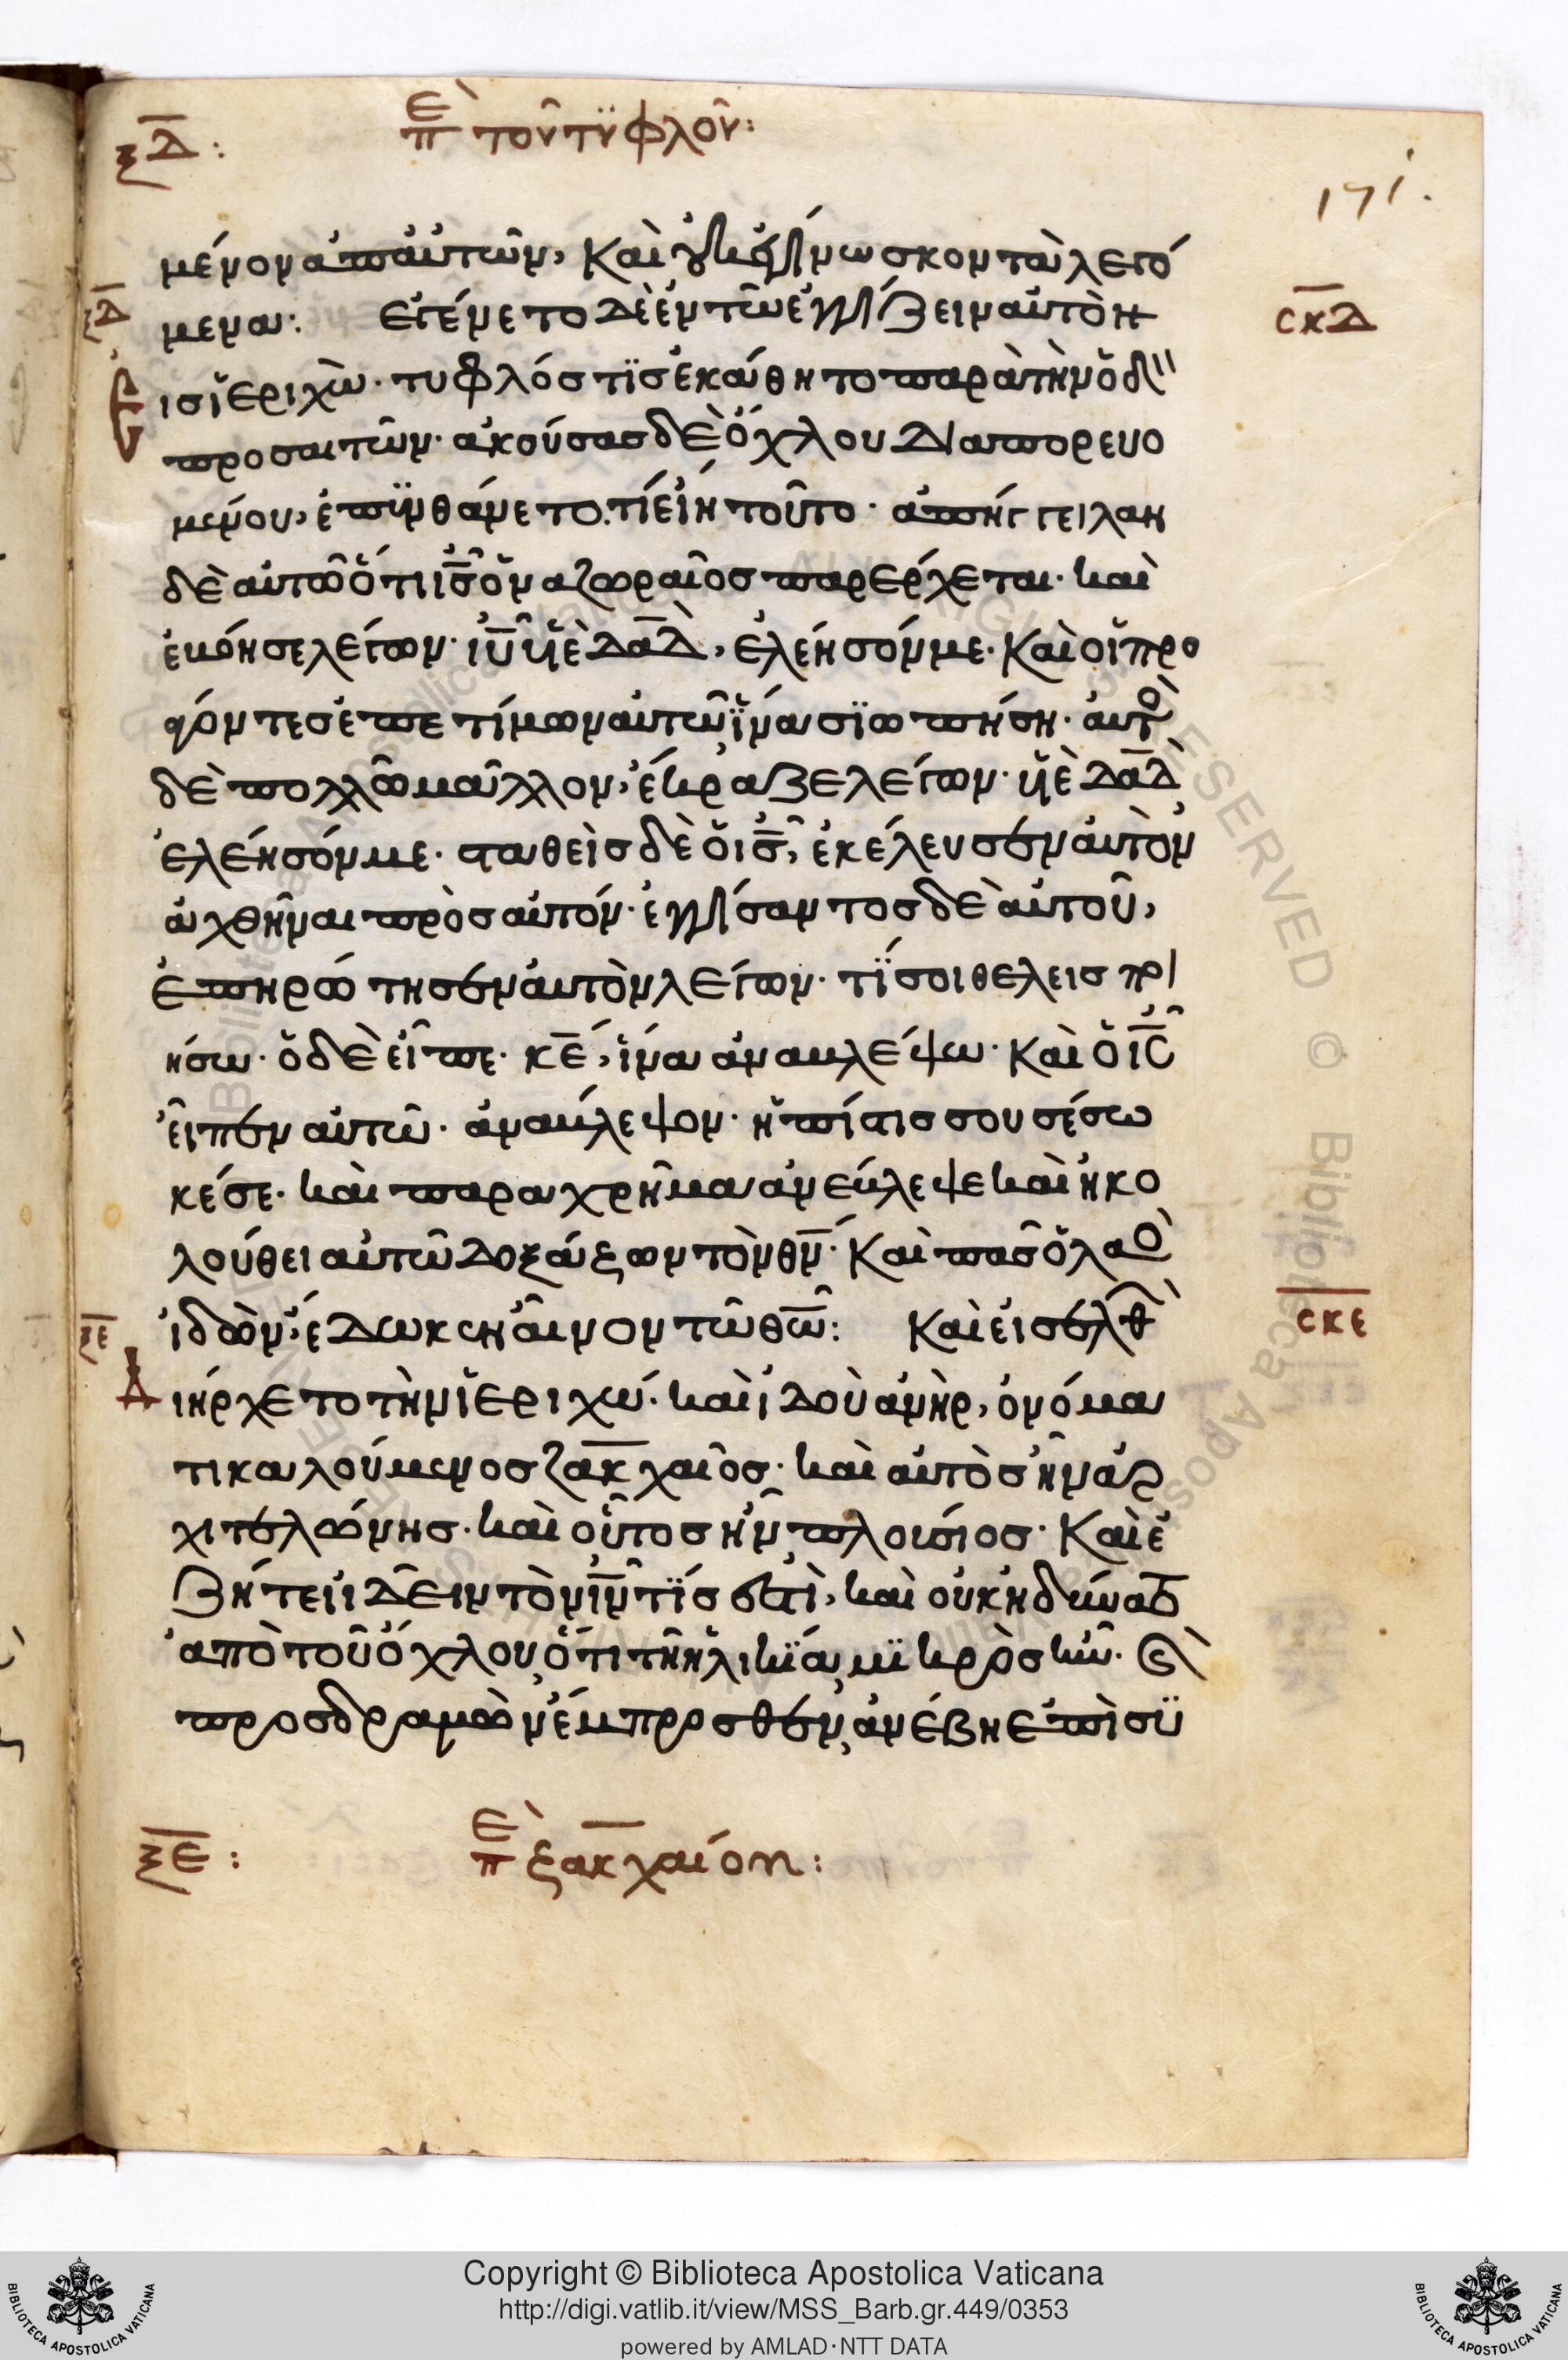 ξδ: επὶ τοῦ τϋφλοῦ:
171.
μένον ἀπ αὐτῶν, Καὶ οὐκ ἐγίνωσκον τὰ λεγό
ξδ μενα: Εγένετο δὲ ἐν τῶ ἐγγίζειν αὐτὸν σκδ
ισ ἱεριχὼ· τυφλόσ τϊσ ἐκάθητο παρὰ τὴν ὁδ
προσαιτῶν· ἀκούσασ δὲ ὄχλου διαπορευο
μένου, ἐπϋνθάνετο. τί εἴη τοῦτο· ἀπήγγειλαν
δὲ αὐτῶ ὅτι ι̅σ̅ ὁ ναζωραῖοσ παρέρχεται· καὶ
ἐβόησε λέγων· ι̅υ̅ υἱὲ δ̅α̅δ̅, ἐλέησόν με· Καὶ οἱ προ
άγοντεσ ἐπετίμων αὐτῶ, ἵνα σϊωπήση· αὐτὸ
δὲ πολλῶ μᾶλλον, ἔκραζε λέγων· υἱὲ δ̅α̅δ̅
ἐλέησόν με· σταθεὶσ δὲ ὁ ι̅σ̅, ἐκέλευσεν αὐτὸν
ἀχθῆναι πρὸσ αὐτόν· ἐγγίσαντοσ δὲ αὐτοῦ,
ἐπηρώτησεν αὐτὸν λέγων· τί σοι θέλεισ ποι
ήσω· ὁ δὲ εἶπε· κ̅ε̅, ἵνα ἀναβλέψω· Καὶ ὁ ι̅σ̅
εἶπεν αὐτῶ· ἀνάβλεψον· ἡ πίστισ σου σέσω
κέ σε· καὶ παραχρῆμα ἀνέβλεψε καὶ ἠκο
λούθει αὐτῶ δοξάζων τὸν θ̅ν̅· Καὶ πᾶσ ὁ λαὸ
ξε ἰδὼν, ἔδωκεν αἶνον τῶ θ̅ω̅: Καὶ εἰσελθ σκε
Διήρχετο τὴν ἱεριχώ· καὶ ἰδοὺ ἀνὴρ, ὀνόμα
τι καλούμενοσ ζακχαῖοσ· καὶ αὐτὸσ ἦν ἀρ
χιτελώνησ· καὶ οὗτοσ ἦν πλούσιοσ· Καὶ ἐ
ζήτει ἰδεῖν τὸν ι̅ν̅ τίσ ἐστὶ, καὶ οὐκ ἠδύνατο
ἀπὸ τοῦ ὄχλου, ὅτι τῆ ἡλικϊά, μϊκρὸσ ἦν· καὶ
προσδραμὼν ἔμπροσθεν, ἀνέβη ἐπὶ σϋ
ξε: επὶ ζακχαίου:
Copyright © Biblioteca Apostolica Vaticana
http://digi.vatlib.it/view/MSS_Barb.gr.449/0353
powered by AMLAD·NTT DATA